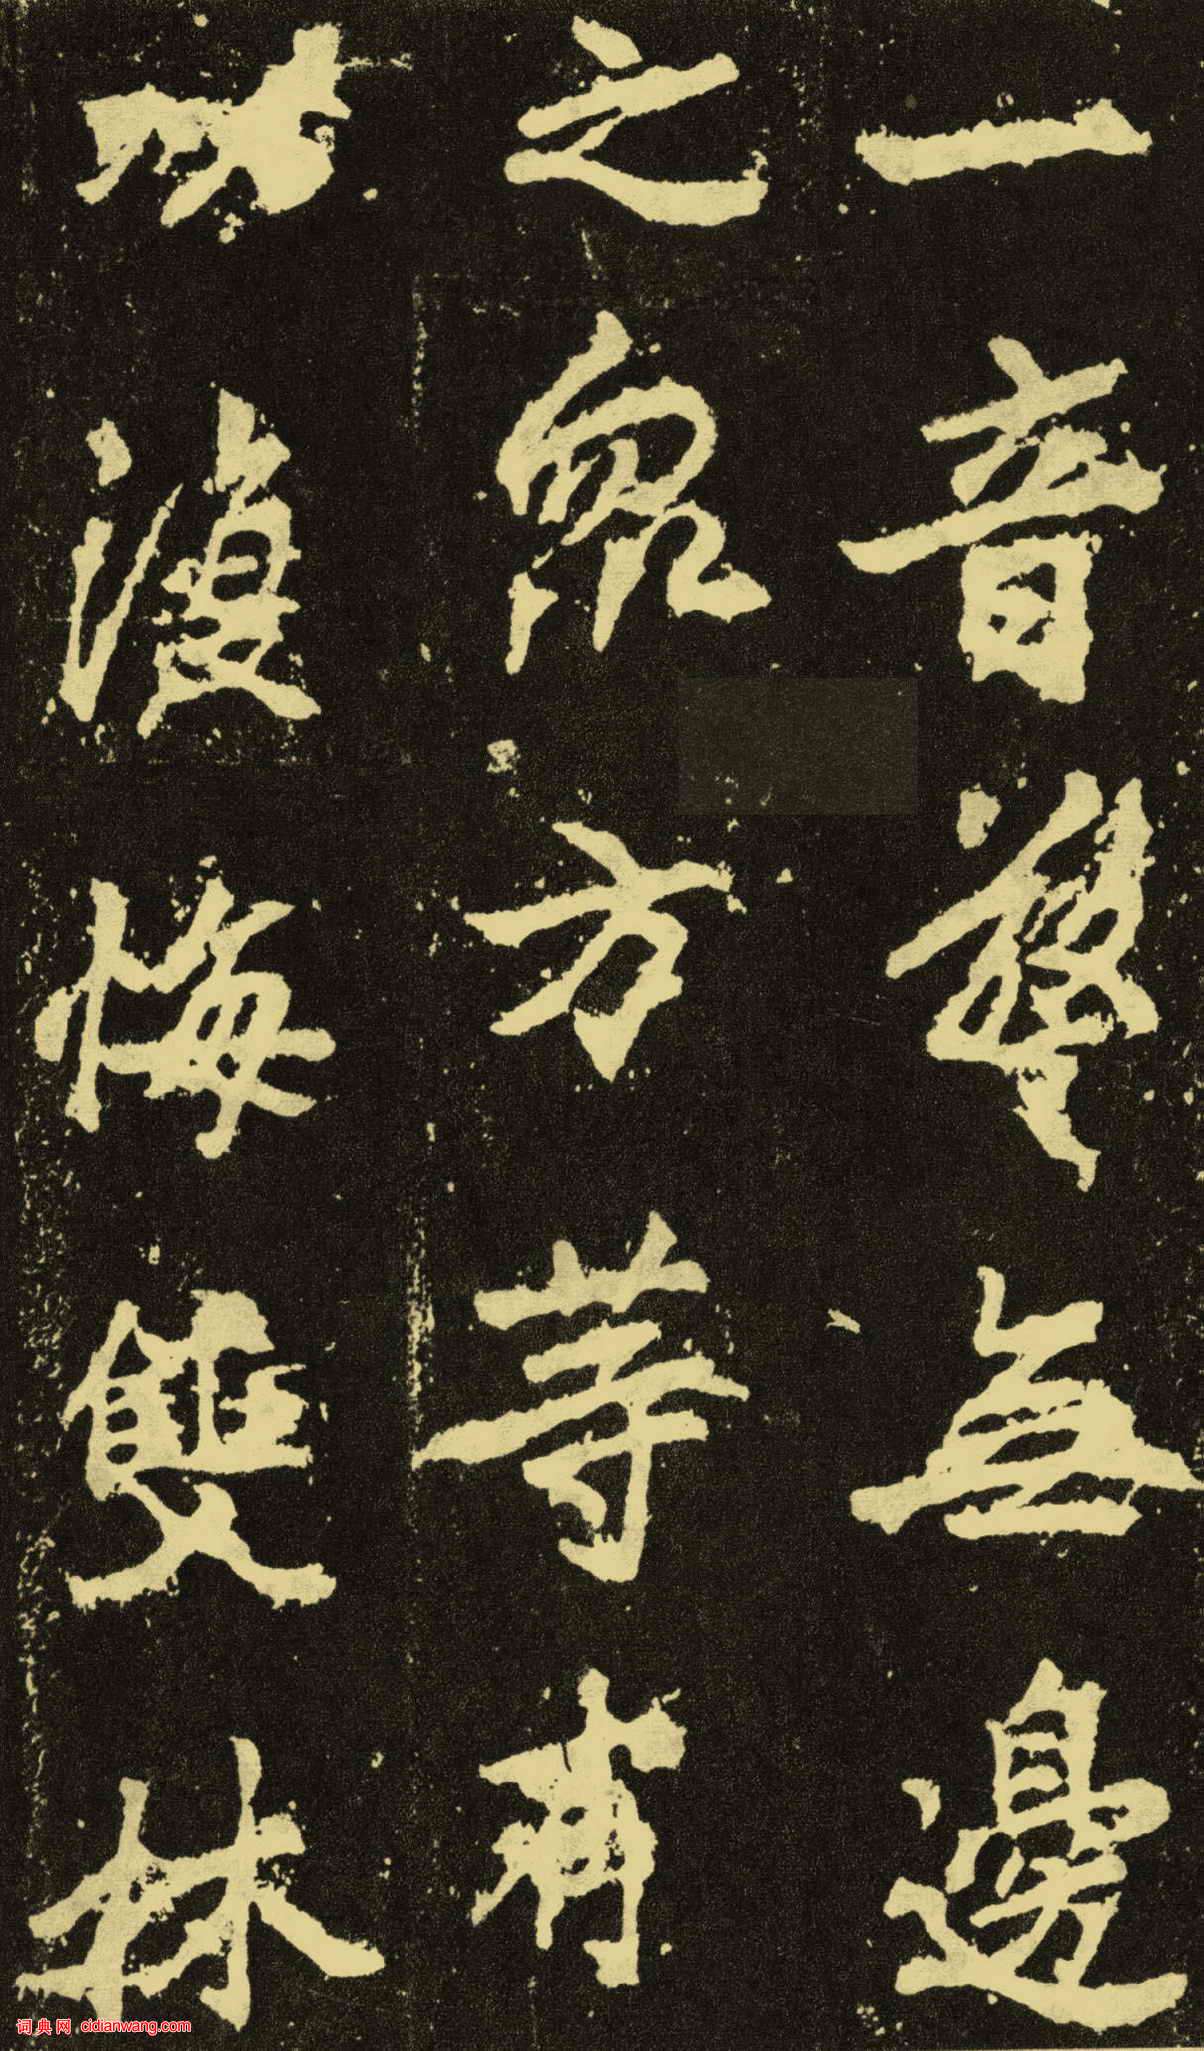 一音無邊
之眾方等甫
復悔雙林
词典网 cidianwang.com